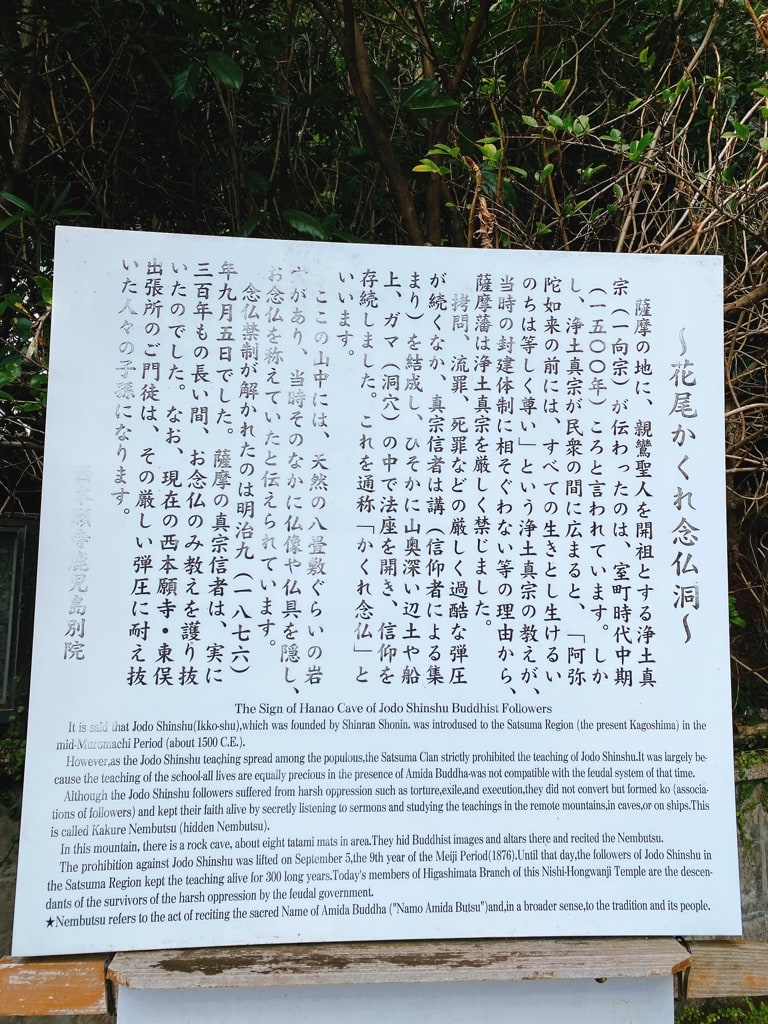 ～花尾かくれ念仏洞～
薩摩の地に、親鸞聖人を開祖とする浄土真
宗（一向宗）が伝わったのは、室町時代中期
（一五〇〇年）ころと言われています。しか
し、浄土真宗が民衆の間に広まると、「阿弥
陀如来の前には、すべての生きとし生けるい
のちは等しく尊い」という浄土真宗の教えが、
当時の封建体制に相そぐわない等の理由から、
薩摩藩は浄土真宗を厳しく禁じました。
拷問、流罪、死罪などの厳しく過酷な弾圧
が続くなか、真宗信者は講（信仰者による集
まり）を結成し、ひそかに山奥深い辺土や船
上、ガマ（洞穴）の中で法座を開き、信仰を
存続しました。これを通称「かくれ念仏」と
いいます。
ここの山中には、天然の八畳敷ぐらいの岩
穴があり、当時そのなかに仏像や仏具を隠し、
お念仏を称えていたと伝えられています。
念仏禁制が解かれたのは明治九（一八七六）
年九月五日でした。薩摩の真宗信者は、実に
三百年もの長い間、お念仏のみ教えを護り抜
いたのでした。なお、現在の西本願寺・東俣
出張所のご門徒は、その厳しい弾圧に耐え抜
いた人々の子孫になります。
西本願寺鹿児島別院
The Sign of Hanao Cave of Jodo Shinshu Buddhist Followers
It is said that Jodo Shinshu(Ikko-shu),which was founded by Shinran Shonin. was introdused to the Satsuma Region (the present Kagoshima) in the
mid-Muromachi Period (about 1500 C.E.).
However,as the Jodo Shinshu teaching spread among the populous,the Satsuma Clan strictly prohibited the teaching of Jodo Shinshu.It was largely be-
cause the teaching of the school-all lives are equally precious in the presence of Amida Buddha-was not compatible with the feudal system of that time.
Although the Jodo Shinshu followers suffered from harsh oppression such as torture,exile,and execution,they did not convert but formed ko (associa-
tions of followers) and kept their faith alive by secretly listening to sermons and studying the teachings in the remote mountains,in caves,or on ships.This
is called Kakure Nembutsu (hidden Nembutsu).
In this mountain, there is a rock cave, about eight tatami mats in area.They hid Buddhist images and altars there and recited the Nembutsu.
The prohibition against Jodo Shinshu was lifted on September 5,the 9th year of the Meiji Period(1876).Until that day,the followers of Jodo Shinshu in
the Satsuma Region kept the teaching alive for 300 long years.Today's members of Higashimata Branch of this Nishi-Hongwanji Temple are the descen-
dants of the survivors of the harsh oppression by the feudal government.
★Nembutsu refers to the act of reciting the sacred Name of Amida Buddha ("Namo Amida Butsu")and,in a broader sense,to the tradition and its people.